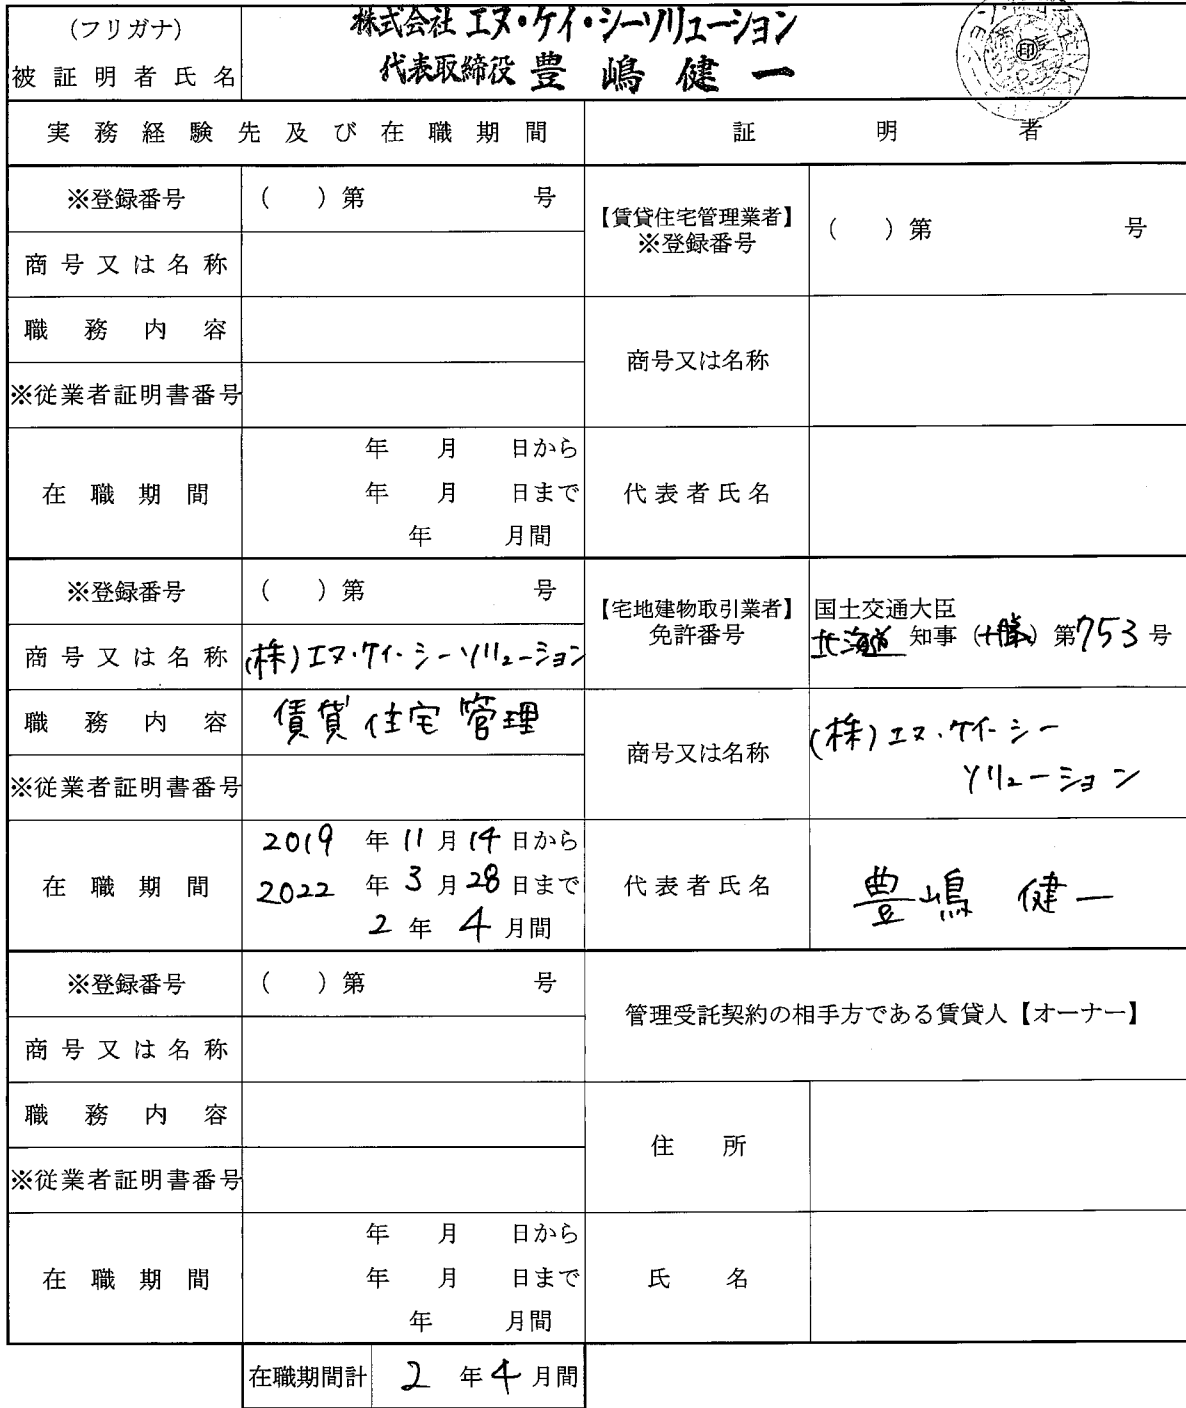 (フリガナ)
被証明者氏名
株式会社 エヌ・ケイ・シーソリューション
代表取締役 豊嶋健一
印
実務経験先及び在職期間
証明者
※登録番号
( )第 号
【賃貸住宅管理業者】
※登録番号
( )第 号
商号又は名称
職務内容
商号又は名称
※従業者証明書番号
在職期間
年 月 日から
年 月 日まで
年 月間
代表者氏名
※登録番号
( )第 号
【宅地建物取引業者】
免許番号
国土交通大臣
北海道 知事 (十勝) 第753号
商号又は名称
(株)エヌ・ケイ・シーソリューション
職務内容
賃貸住宅管理
商号又は名称
(株)エヌ・ケイ・シー
ソリューション
※従業者証明書番号
在職期間
2019 年 11 月 14 日から
2022 年 3 月 28 日まで
2 年 4 月間
代表者氏名
豊嶋 健一
※登録番号
( )第 号
管理受託契約の相手方である賃貸人【オーナー】
商号又は名称
職務内容
住所
※従業者証明書番号
在職期間
年 月 日から
年 月 日まで
年 月間
氏名
在職期間計
2 年 4 月間